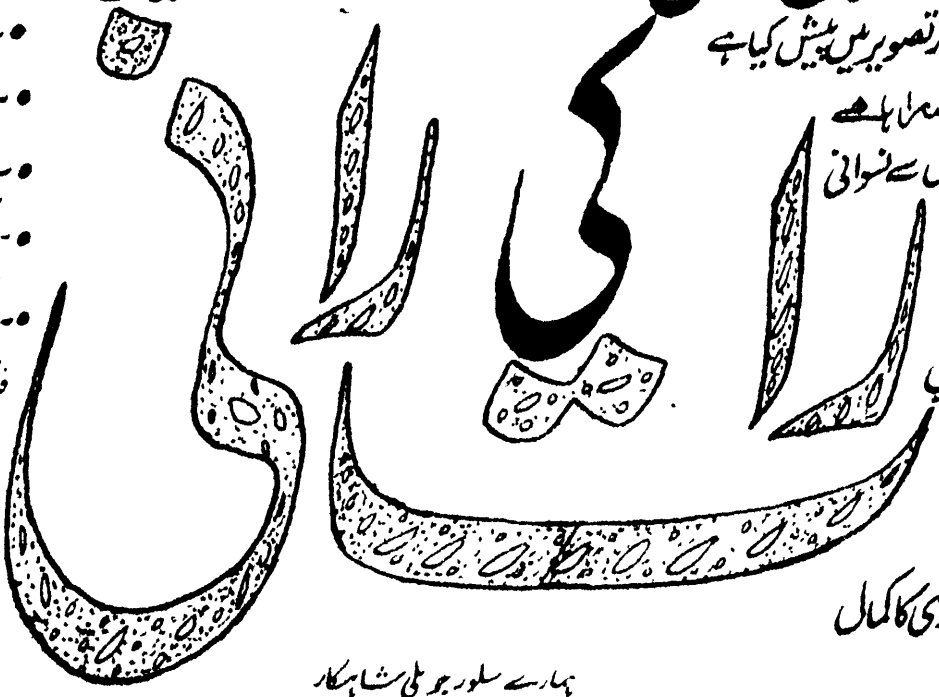 تصویر میں پیش کیا ہے
سراہا ہے
سے نسوانی
رات کی رانی
کا کمال
ہمارے سلور جوبلی شاہکار